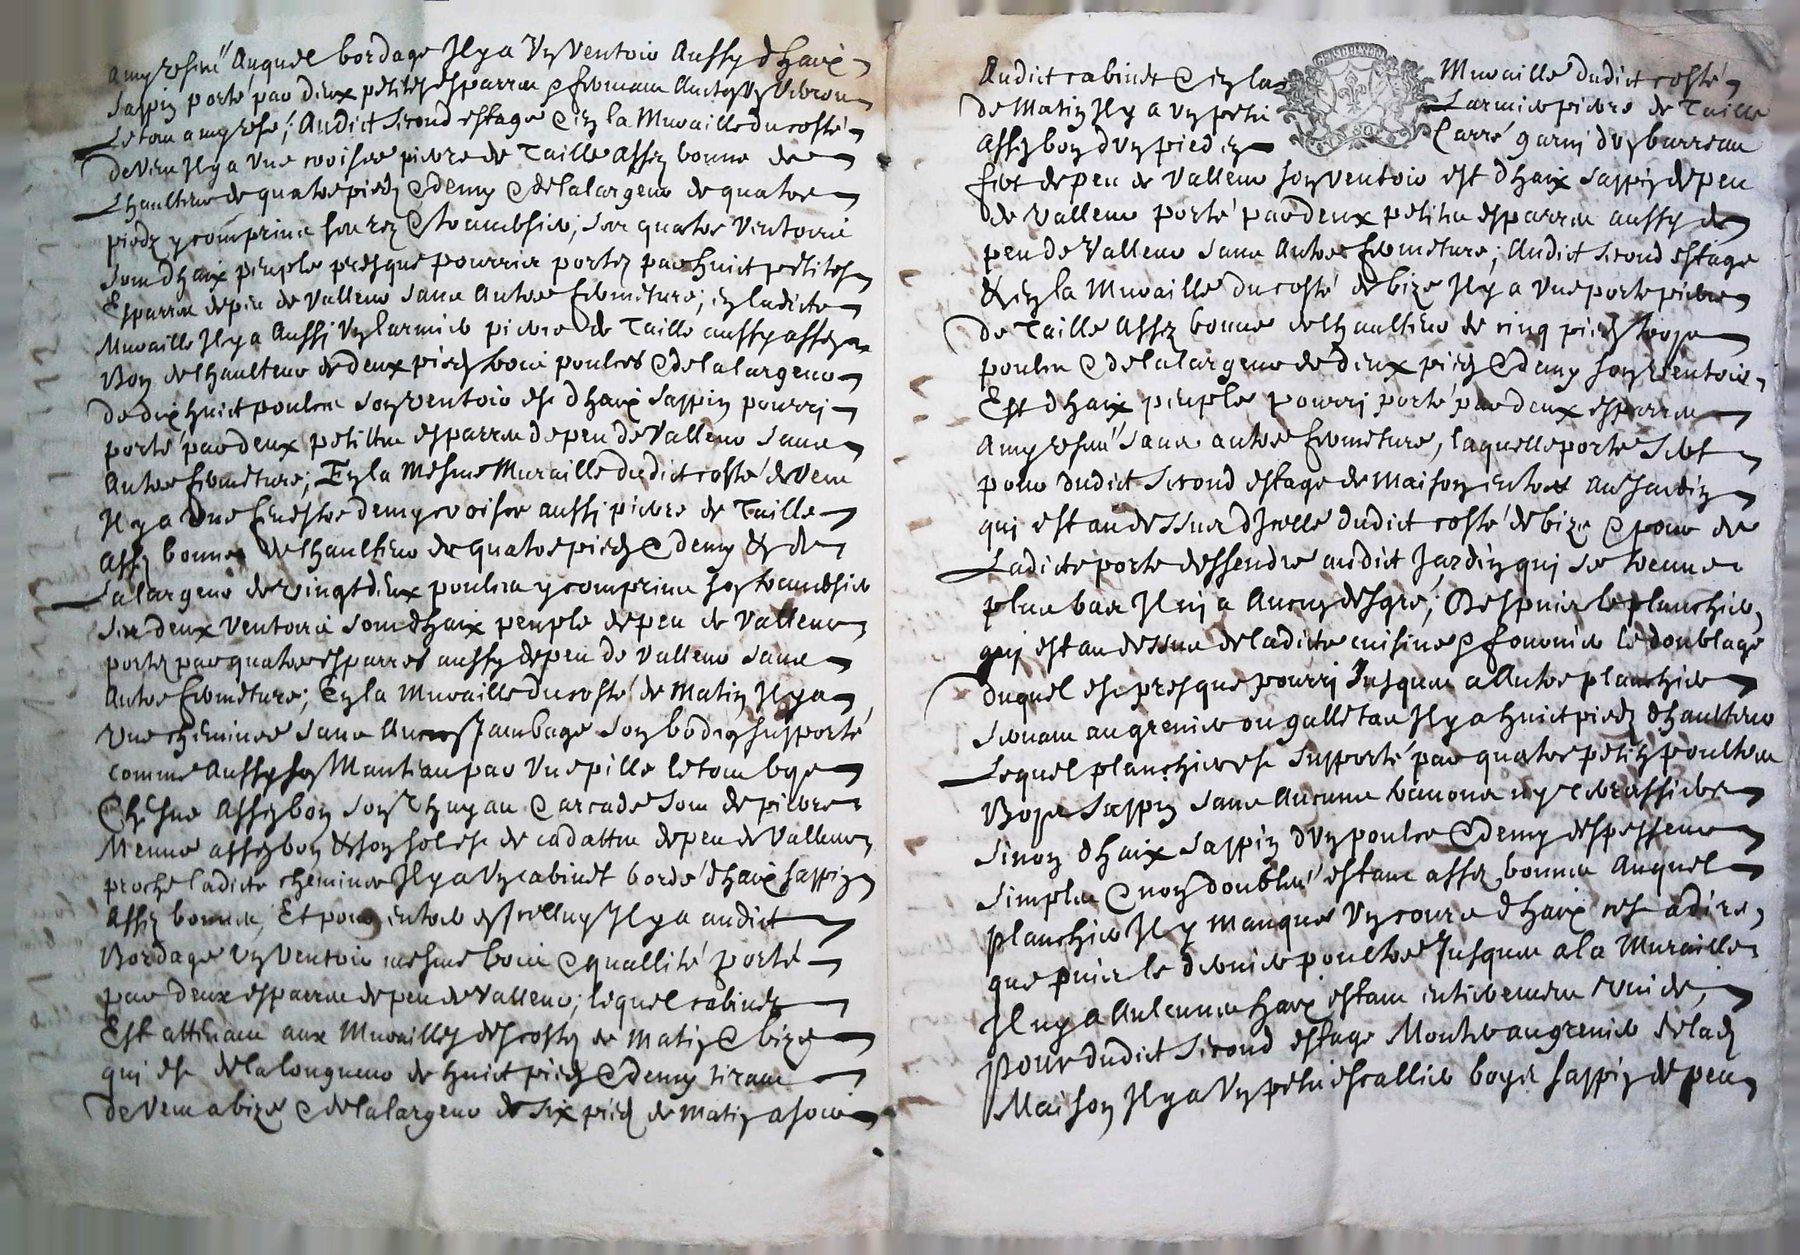 amy resiné Auquel bordage Il y a Un Ventoir Aussy d'haix
sappin porté par deux petites esparres & fermant Auec Un Veroul
Le tout a my rese; Audict second estage & en la Muraille du costé
de Vent Il y a Une croisee pierre de Taille Assez bonne de
Lhaulteur de quatre piedz & demy & de la largeur de quatre
piedz y comprins son rez & trauersier; ses quatre Ventoirs
sont d'haix peuple presque pourris portez par huict petites
Esparres de peu de Valleur sans Autre fermeture; en ladicte
Muraille Il y a Aussi Un larmier pierre de Taille aussy assez
Bon de lhaulteur de deux piedz trois poulces & de la largeur
de dix huict poulces son ventoir est d'haix sappin pourri
porté par deux petittes esparres de peu de Valleur sans
Autre fermeture; En la mesme Muraille dudict costé de Vent
Il y a Une fenestre demy croisee aussi pierre de Taille
Assez bonne de lhaulteur de quatre piedz & demy & de
La largeur de vingt deux poulces y comprins son trauersier
ses deux Ventoirs sont d'haix peuple de peu de Valleur
portez par quatre esparres aussy de peu de Valleur sans
Autre fermeture; En la Muraille du costé de Matin Il y a
Une cheminee sans Aucun Jambage son bord supporté
comme Aussy son Manteau par Une pille le tout boys
Chesne Assez bon son Thuyau & arcade sont de pierre
Menue assez bon & son sol est de cadattes de peu de Valleur
proche ladicte cheminee Il y a Un cabinet bordé d'haix sappin
Assez bonnes, Et pour entrer en Icelluy Il y a audict
Bordage Un Ventoir mesme bois & quallité porté
par deux esparres de peu de Valleur; lequel cabinet
Est attenant aux Murailles des costez de Matin & bize
qui est de la longueur de huict piedz & demy tirant
de Vent a bize & de la largeur de six piedz de Matin a soir
Audict cabinet & en la Muraille dudict costé
de Matin Il y a Un petit Larmier pierre de Taille
Assez bon d'un pied en Carré garni d'un barreau
fert de peu de Valleur son ventoir est d'haix sappin de peu
de Valleur porté par deux petittes esparres aussy de
peu de Valleur sans Autre fermeture; Audict second estage
& en la Muraille du costé de bize Il y a Une porte pierre
de Taille Assez bonne de lhaulteur de cinq piedz trois
poulces & de la largeur de deux piedz & demy son Ventoir
Est d'haix peuple pourri porté par deux esparres
amy resiné sans autre fermeture, laquelle porte sert
pour dudict second estage de maison entrer au Jardin
qui est au dessus d'Icelle dudict costé de bize & pour de
Ladicte porte dessendre audict Jardin qui se treuue
plus bas Il ni a Aucun desgré; Despuis le planchier
qui est au dessus de ladicte cuisine & fournier le doublage
duquel est presque pourri Jusques a l'Autre planchier
seruant au grenier ou galletas Il y a huict piedz d'haulteur
Lequel planchier est supporté par quatre petitz poultres
Boys sappin sans Aucune
sinon d'haix sappin d'Un poulce & demy despesseur
simples & non doublés estant assez bonnes Auquel
planchier Il y manque Un cours d'haix cest a dire
que puis le dernier poultre Jusques a la Muraille
Il ny a Aulcunes haix estant entierement vuide,
Pour dudict second estage Monter au grenier de lad
Maison Il y a Un petit escallier boys sappin de peu